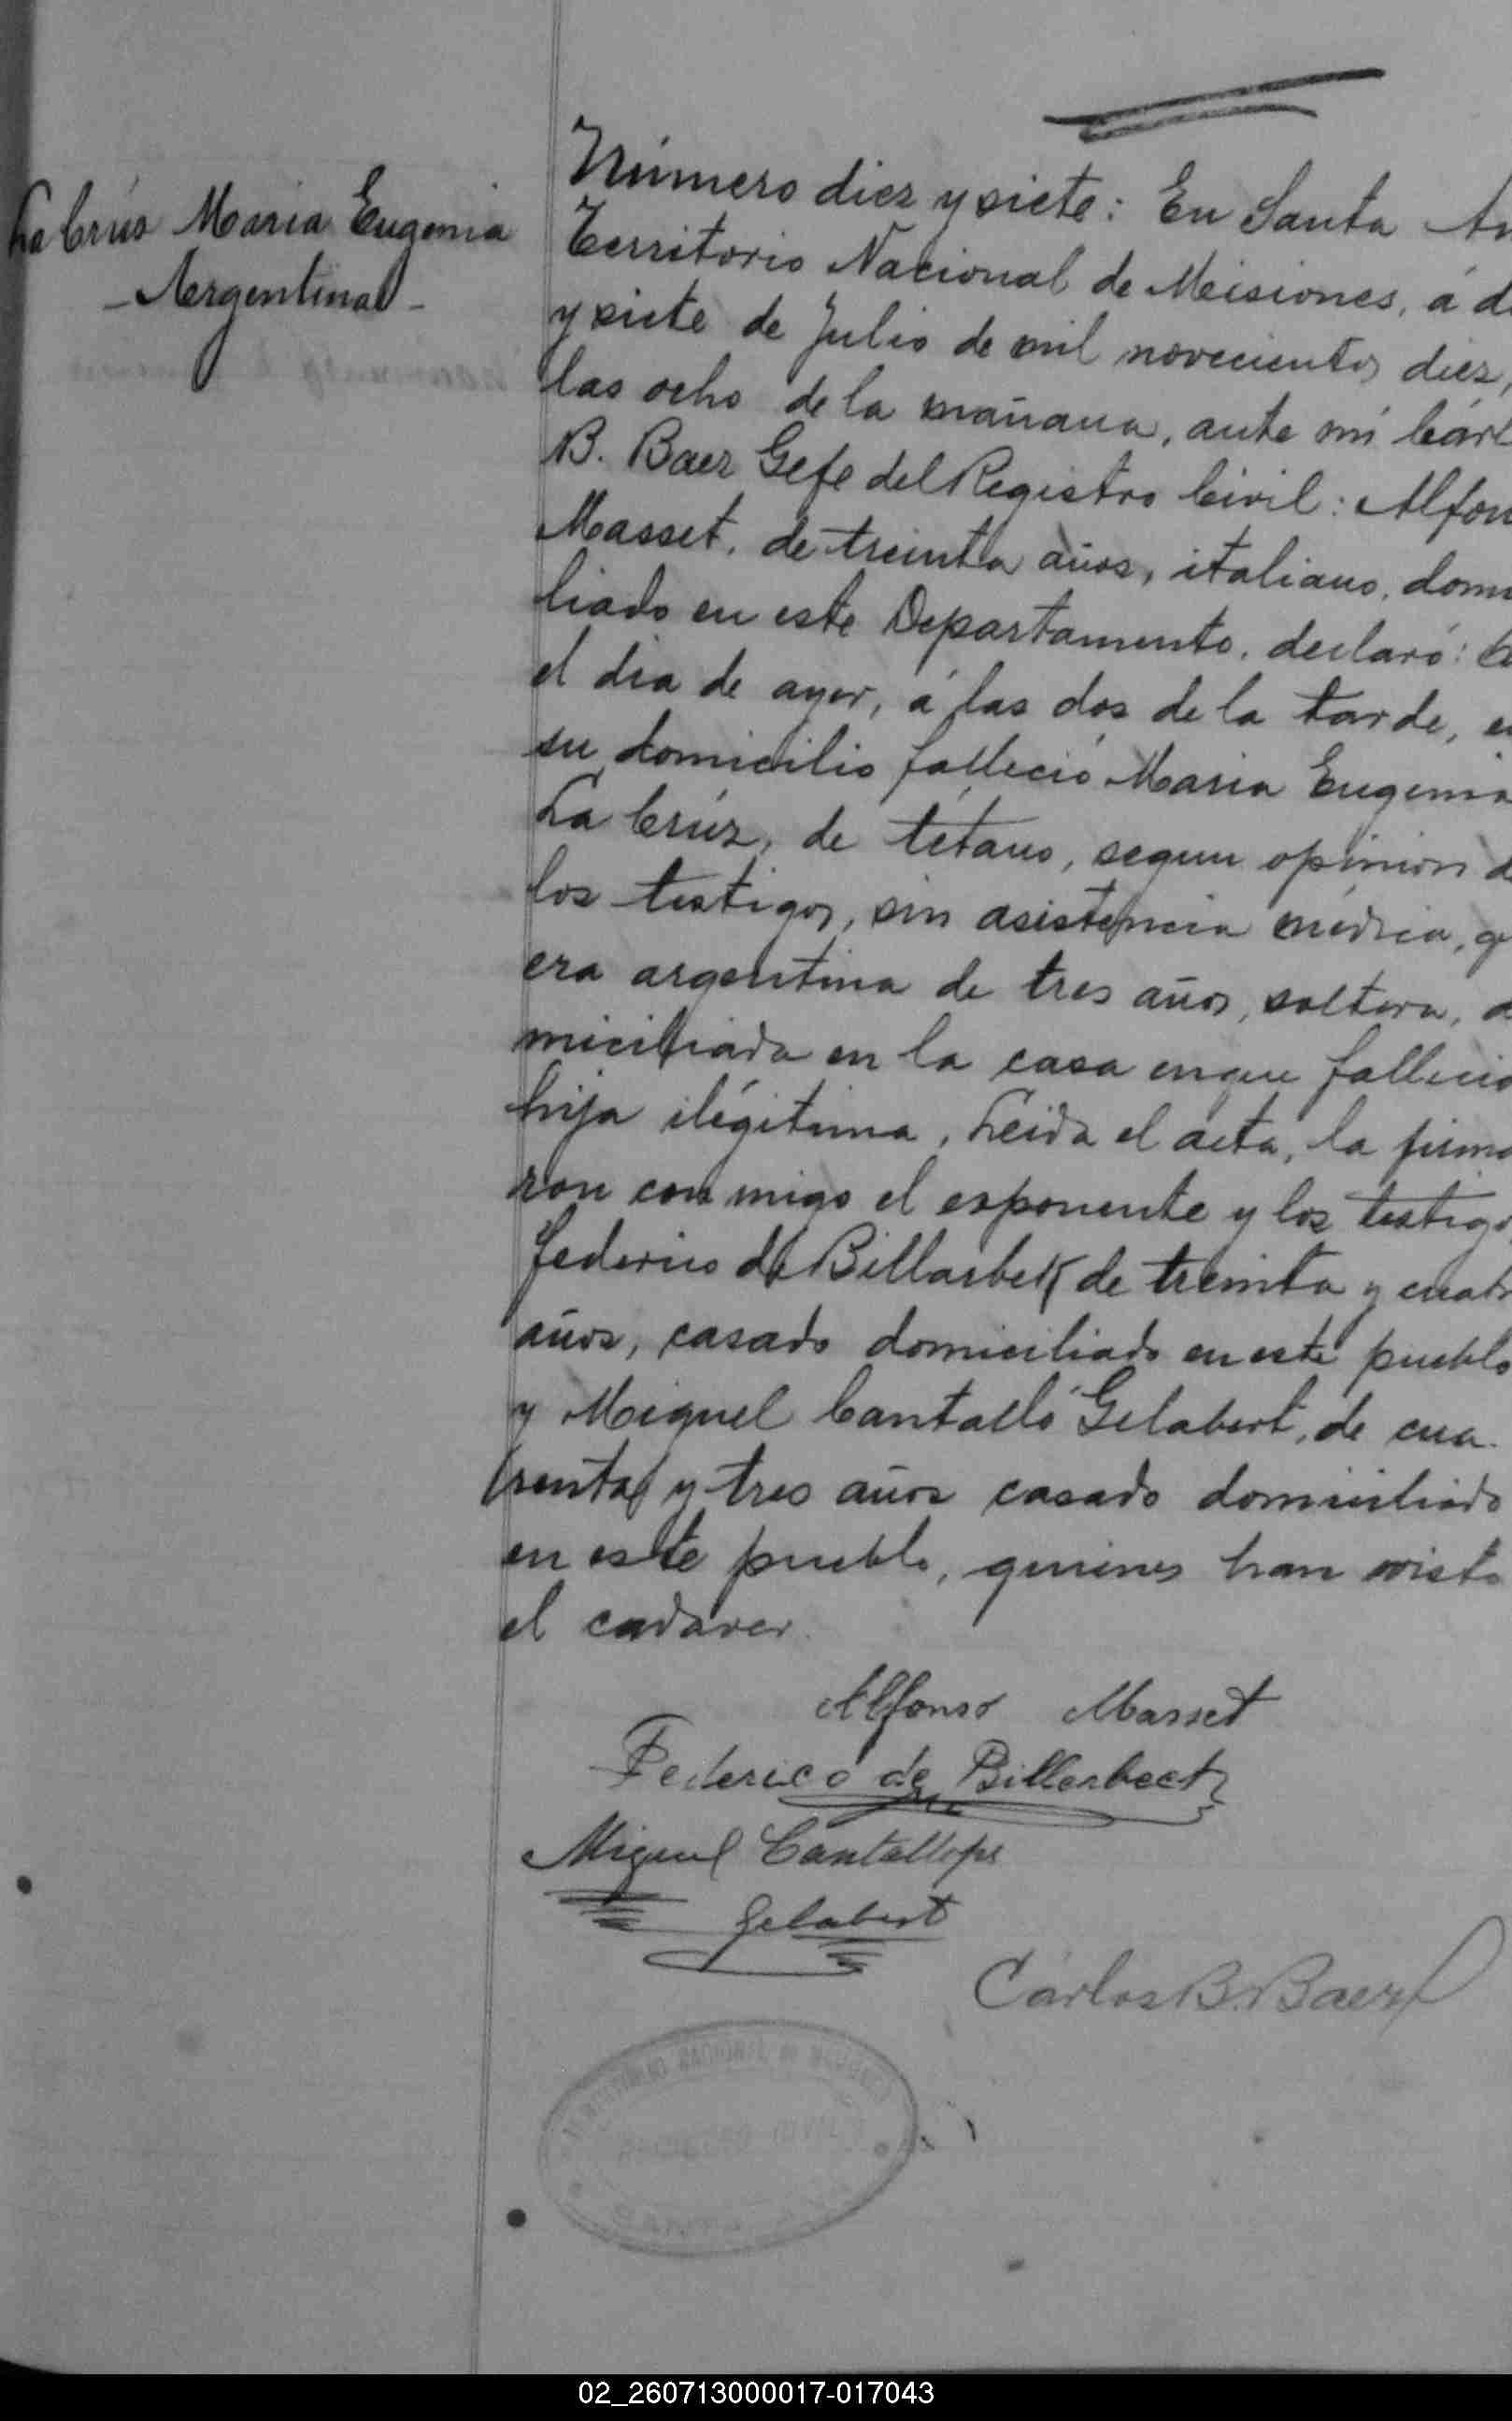 La Crús Maria Eugenia
- Argentina -
Número diez y siete: En Santa An
Territorio Nacional de Misiones, á di
y siete de Julio de mil novecientos diez,
las ocho de la mañana, ante mí Cárl
B. Baez Gefe del Registro Civil: Alfon
Masset, de treinta años, italiano, domi
liado en este Departamento, declaró:
el dia de ayer, á las dos de la tarde, en
su domicilio falleció Maria Eugenia
La Crúz, de tétano, segun opinion d
los testigos, sin asistencia médica, q
era argentina de tres años, soltera, d
miciliada en la casa en que falleció
hija ilégitima, Leida el acta, la firma
ron con migo el esponente y los testigo
Federico de Billarbek de treinta y cuatr
años, casado domiciliado en este pueblo
y Miguel Cantalló Gelabert, de cua
renta y tres años casado domiciliado
en este pueblo, quienes han visto
el cadaver.
Alfonso Masset
Federico de Billerbeck
Miguel Cantallops
Gelabert
Carlos B. Baez
REGISTRO CIVIL
02_260713000017-017043